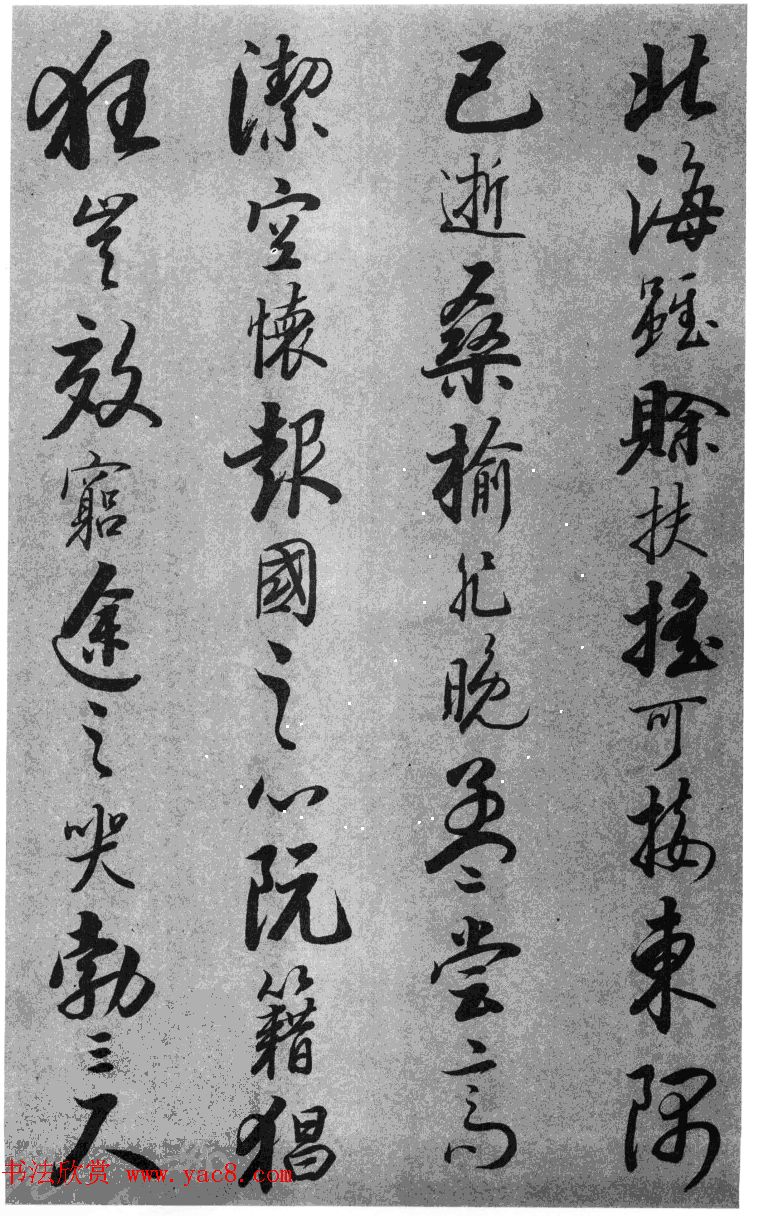 北海雖賒扶搖可接東隅
已逝桑榆非晚孟〻嘗〻高
潔空懷報國之心阮籍猖
狂豈效窮途之哭勃三尺
书法欣赏 www.yac8.com